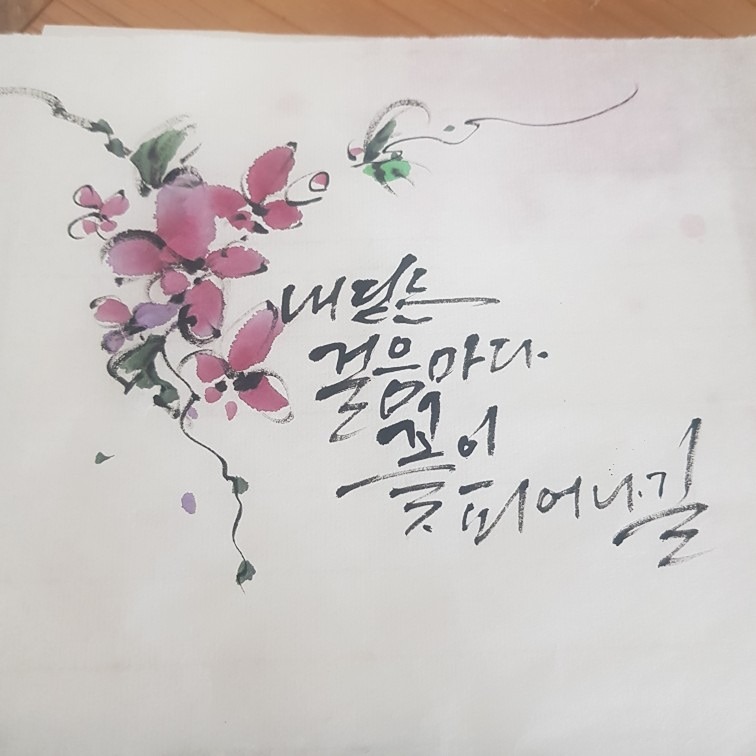 내딛는
걸음마다
꽃이
피어나길